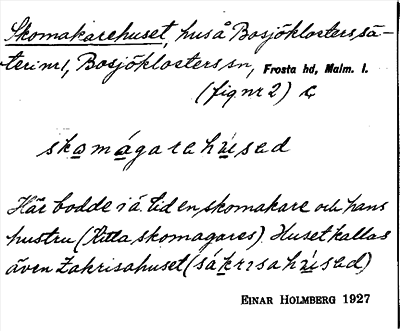 Skomakarehuset, hus å Bosjöklosters sä-
teri nr 1, Bosjöklosters sn, Frosta hd, Malm. l.
(fig nr 2) C
skomágarehúised
Här bodde i ä. tid en skomakare och hans
hustru (Kitta skomagares). Huset kallas
även Zakrisahuset (sákrisahúised)
EINAR HOLMBERG 1927